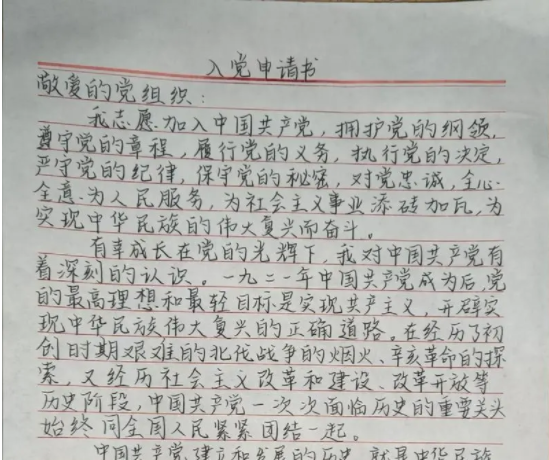 入党申请书
敬爱的党组织：
我志愿加入中国共产党，拥护党的纲领，
遵守党的章程，履行党的义务，执行党的决定，
严守党的纪律，保守党的秘密，对党忠诚，全心
全意为人民服务，为社会主义事业添砖加瓦，为
实现中华民族的伟大复兴而奋斗。
有幸成长在党的光辉下，我对中国共产党有
着深刻的认识。一九二一年中国共产党成为后，党
的最高理想和最轻目标是实现共产主义，开辟实
现中华民族伟大复兴的正确道路。在经历了初
创时期艰难的北伐战争的烟火、辛亥革命的探
索，又经历社会主义改革和建设、改革开放等
历史阶段，中国共产党一次次面临历史的重要关头
始终同全国人民紧紧团结一起。
中国共产党建立和发展的历史，就是中华民族